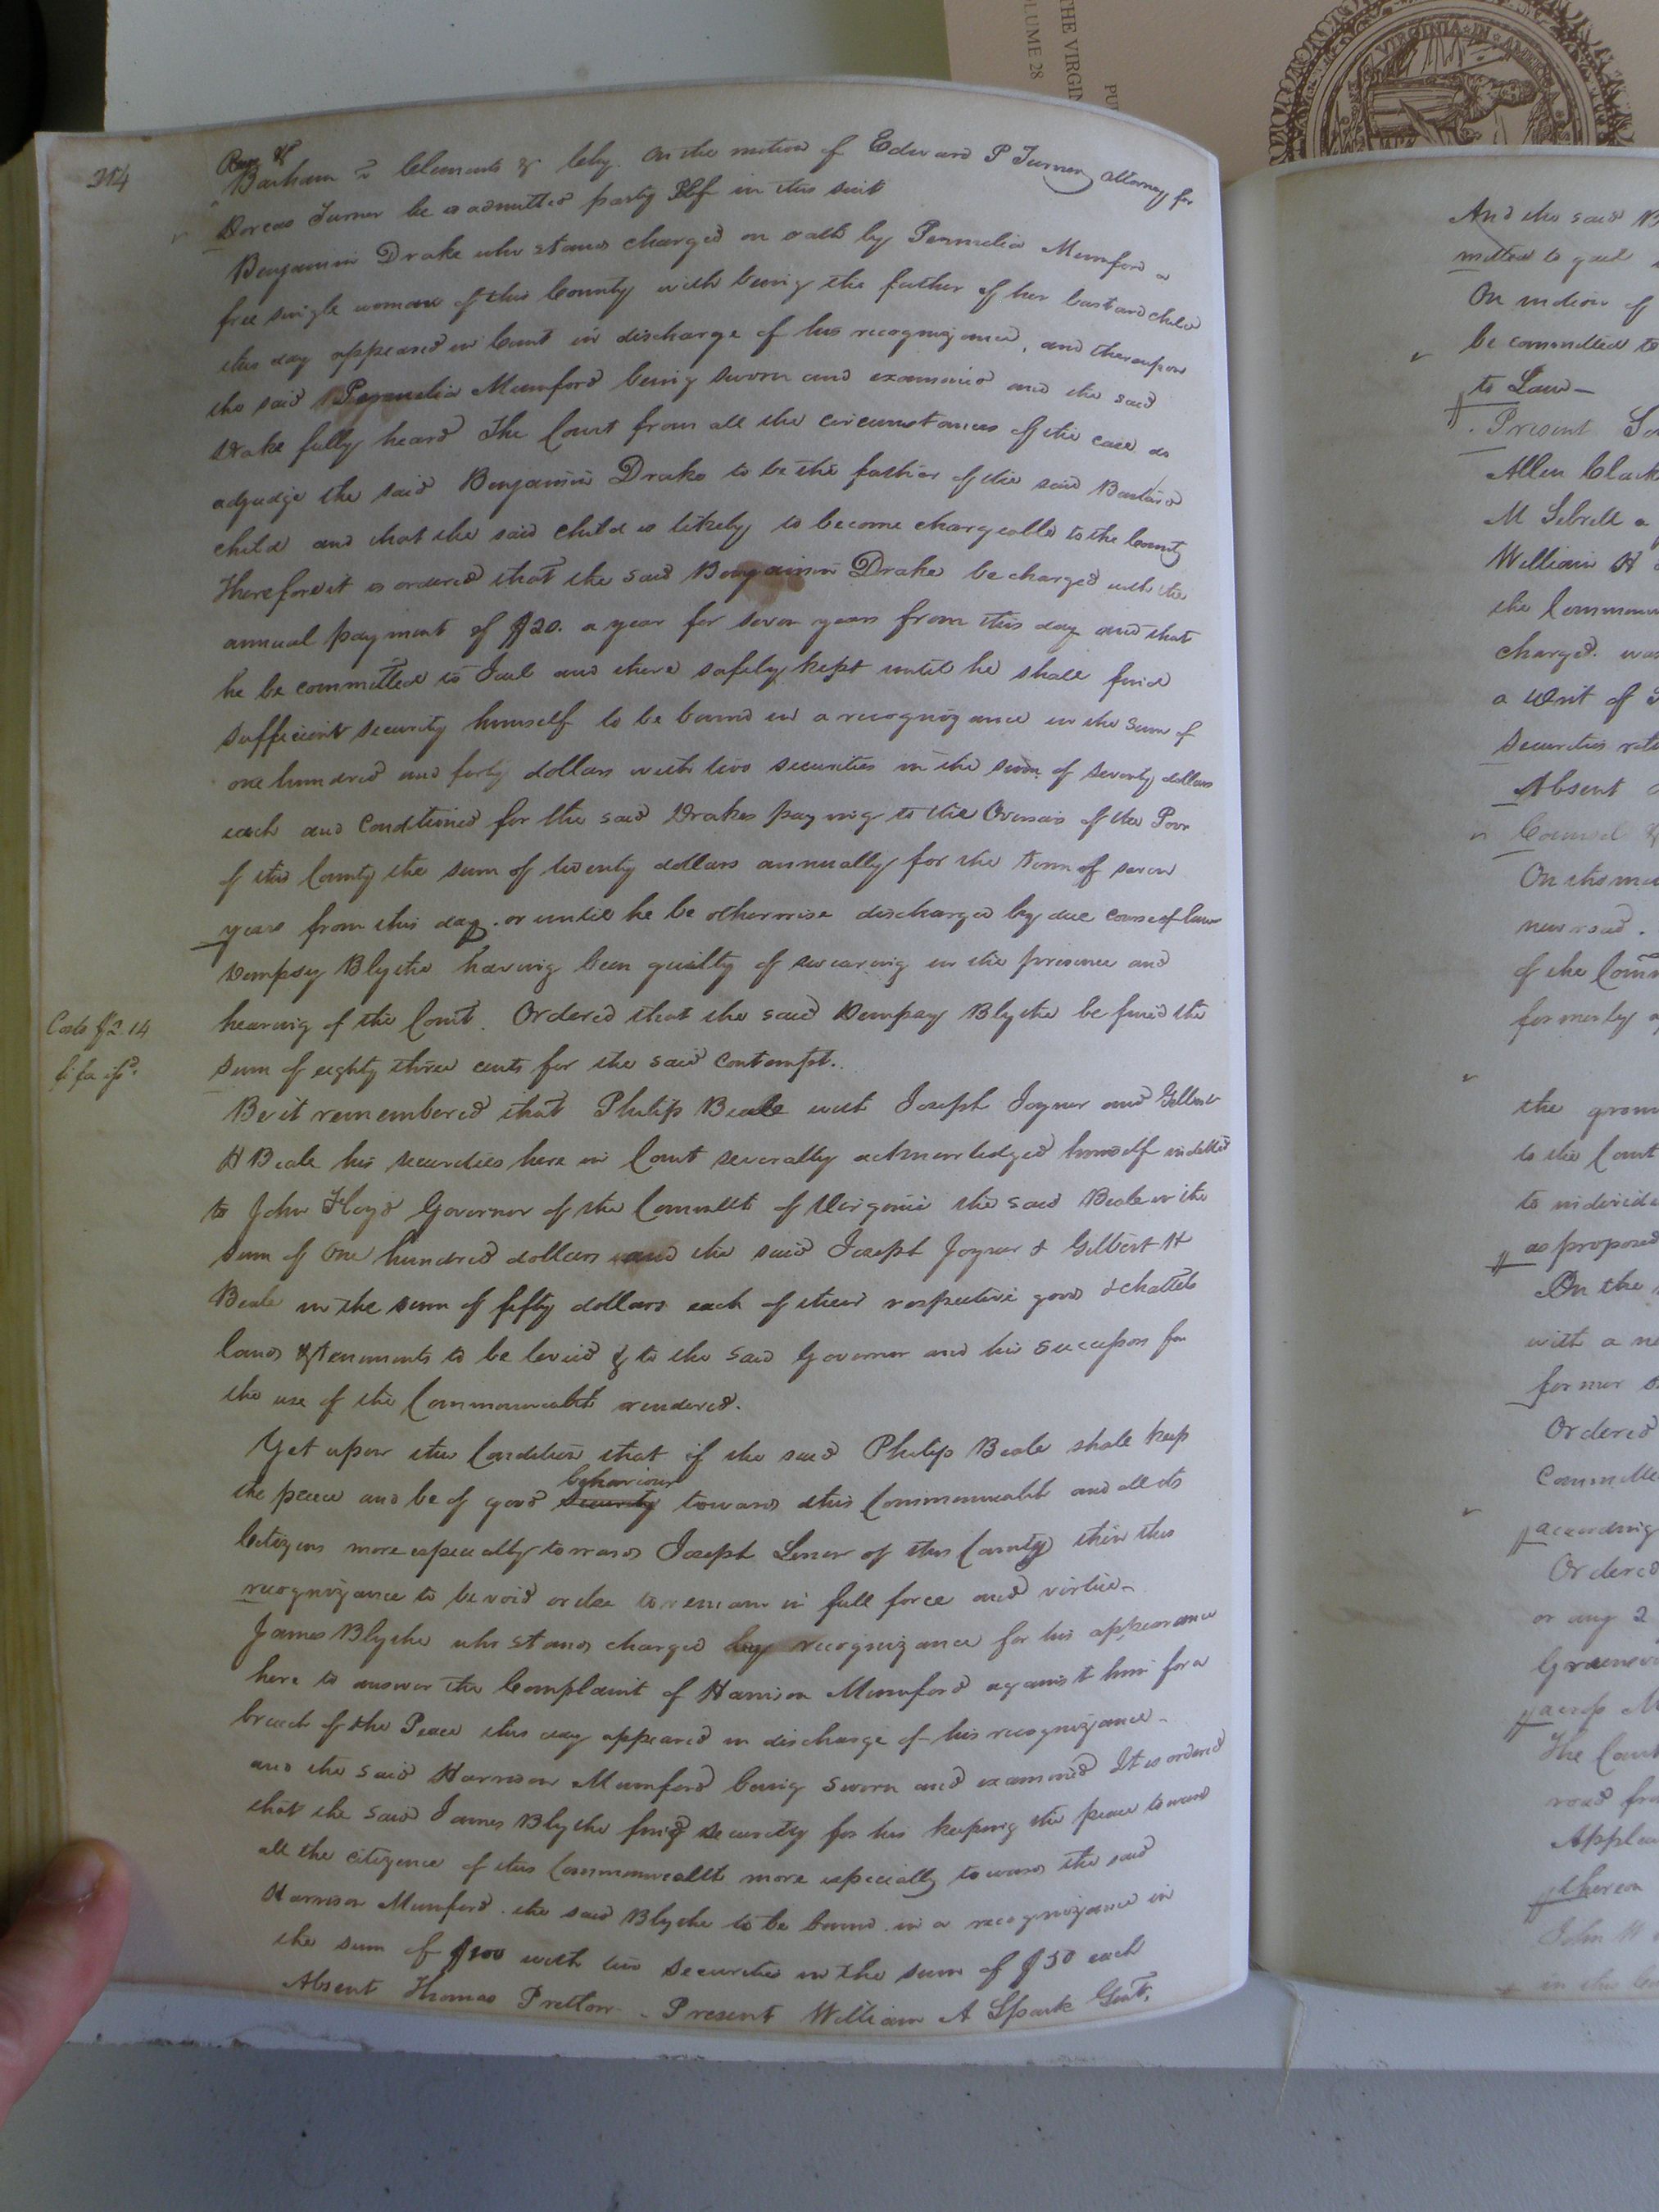 THE VIRGIN
LUME 28
PU
VIRGINIA IN
214
Barham vs Clements & Coby. On the motion of Edward P Turner attorney for
Dorcas Turner he is admitted party Plf in this suit
Benjamin Drake who stands charged on oath by Permelia Mumford a
free single woman of this County with being the father of her bastard child
this day appeared in Court in discharge of his recognizance, and thereupon
the said Permelia Mumford being sworn and examined and the said
Drake fully heard The Court from all the circumstances of the case do
adjudge the said Benjamin Drake to be the father of the said Bastard
child and that the said child is likely to become chargeable to the County
Therefore it is ordered that the said Benjamin Drake be charged with the
annual payment of $20. a year for seven years from this day and that
he be committed to Jail and there safely kept until he shall find
sufficient security himself to be bound in a recognizance in the sum of
one hundred and forty dollars with two securities in the sum of seventy dollars
each and Condtioned for the said Drakes paying to the Overseers of the Poor
of this County the sum of twenty dollars annually for the term of seven
years from this day. or until he be otherwise discharged by due course of law
Dempsey Blythe having been guilty of swearing in the presence and
Costs $2.14
hearing of the Court. Ordered that the said Dempsey Blythe be fined the
fi fa issd.
sum of eighty three cents for the said Contempt.
Be it remembered that Philip Beale with Joseph Joyner and Gilbert
H Beale his securities here in Court severally acknowledged himself indebted
to John Floyd Governor of the Commonwlth of Virginia the said Beale in the
sum of One hundred dollars and the said Joseph Joyner & Gilbert H
Beale in the sum of fifty dollars each of their respective goods & chattels
lands & tenements to be levied & to the said Governor and his successors for
the use of the Commonwealth rendered.
Yet upon this Condition that if the said Philip Beale shall keep
behaviour
the peace and be of good security towards this Commonwealth and all its
Citizens more especially towards Joseph of this County then this
recognizance to be void or else to remain in full force and virtue
James Blythe who stands charged by recognizance for his appearance
here to answer the Complaint of Harrison Mumford against him for a
breach of the Peace this day appeared in discharge of his recognizance
and the said Harrison Mumford being sworn and examined It is ordered
that the said James Blythe find security for his keeping the peace toward
all the citizence of this Commonwealth more especially towards the said
Harrison Mumford. the said Blythe to be bound in a recognizance in
the sum of $100 with two securities in the sum of $50 each
Absent Thomas Pretlow - Present William A Spark Gent.
And the said B
mitted to gaol
On motion of
be committed to
to Law
Present
Allen Clark
M Sebrell a
William H
the Common
charged. was
a Writ of
securities
Absent
Counsel
On the
new road.
of the Comm
formerly
the groun
to the Court
to
as proposed
On the
with a ne
former
Ordered
Committe
according
Ordered
or any 2
The Court
road fro
thereon
John